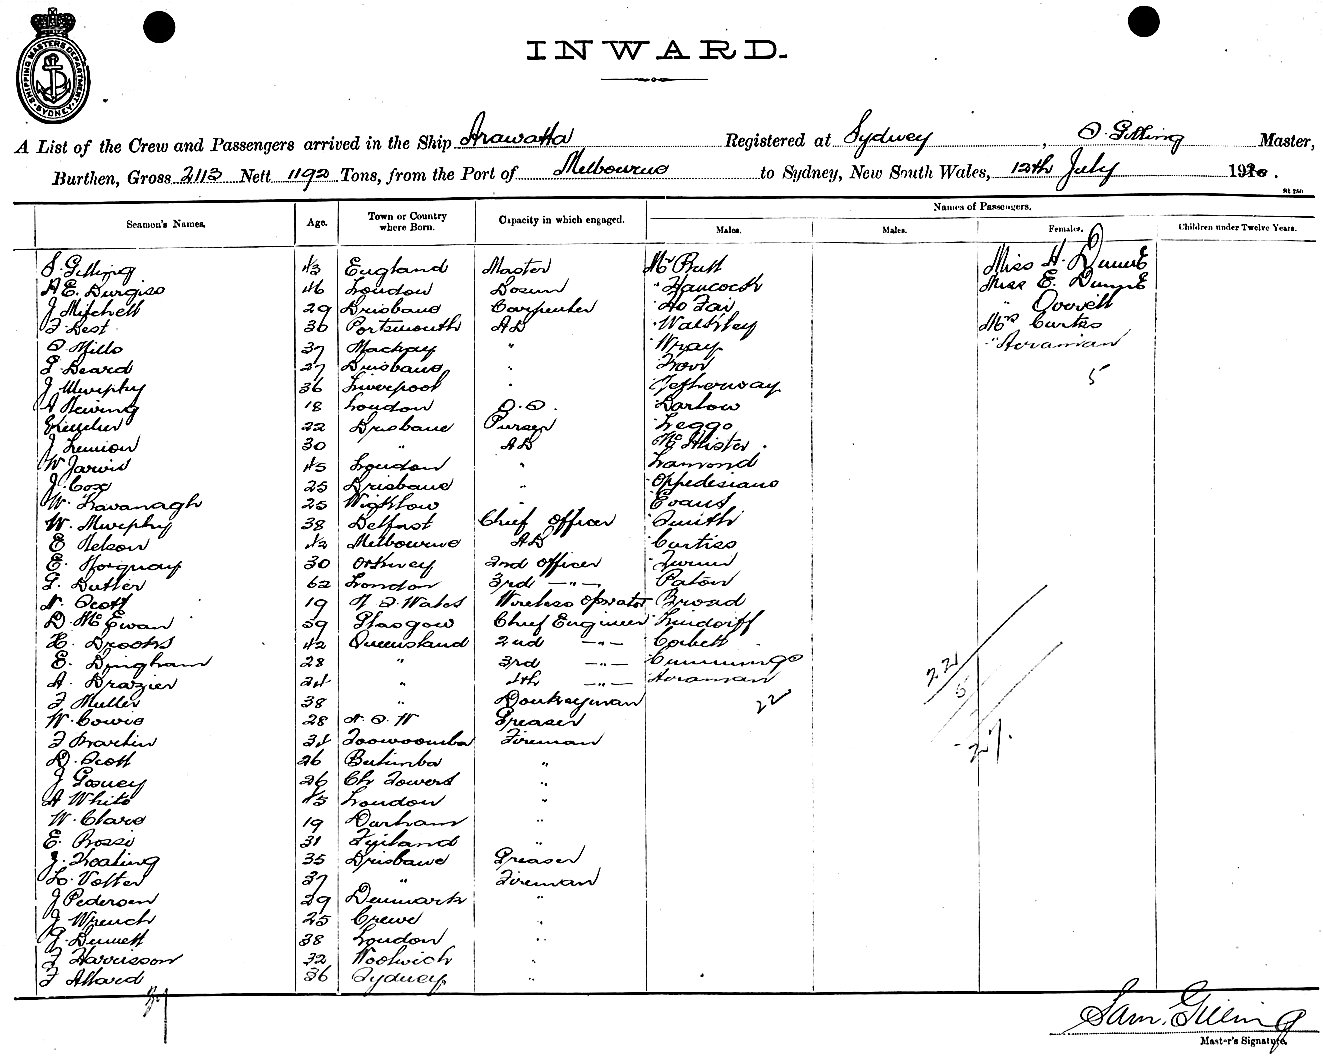 SHIPPING MASTERS DEPARTMENT SYDNEY
INWARD.
A List of the Crew and Passengers arrived in the Ship Arawatta Registered at Sydney, S. Gilling Master,
Burthen, Gross 2113 Nett 1192 Tons, from the Port of Melbourne to Sydney, New South Wales, 12th July 19
Seamen's Names. Age. Town or Country where Born. Capacity in which engaged. Names of Passengers.
Males. Males. Females. Children under Twelve Years.
S. Gilling 43 England Master Mr Butt Miss H.
46 London Bosun " Hancock Miss E.
J Mitchell 29 Brisbane Carpenter " Ho Fai "
F Best 36 Portsmouth AB Mrs Curtiss
S Mills 37 Mackay " " Wray " Avranian
Beard 27 Brisbane "
J Murphy 36 Liverpool " " Tetherway 5
18 London O.S. " Barlow
22 Brisbane Purser " Leggo
J 30 " AB " McAlister
W Jarvis 45 London " " Lamond
J. Cox 25 Brisbane " " Oppedisano
W. Kavanagh 25 Wicklow " " Evans
W. Murphy 38 Belfast Chief Officer " Smith
E Nelson 42 Melbourne AB " Curtiss
E. 30 Orkney 2nd Officer "
G. Butler 62 London 3rd -"- " Paton
N. Scott 19 N S Wales Wireless Operator " Broad
D. McEwan 39 Glasgow Chief Engineer " Lindorff
H. Brooks 42 Queensland 2nd -"- " Corbett
E. Bingham 28 " 3rd -"- " Cummings
A. Brazier 24 " 4th -"- " Avranian
F Muller 38 " Donkeyman 22
W. Cowie 28 N.S.W Greaser
F Martin 34 Toowoomba Fireman
D. Scott 26 Bulimba "
J Gosney 26 Ch Towers "
A White 43 London "
W. Clare 19 Durham "
E. Rossi 31 "
J. Keating 35 Brisbane Greaser
37 " Fireman
J Pedersen 29 Denmark "
J Wrench 25 Crewe "
G. Bennett 38 London "
F Harrisson 32 Woolwich "
F Allard 36 Sydney "
22
5
27
37
Sam. Gilling
Master's Signature.